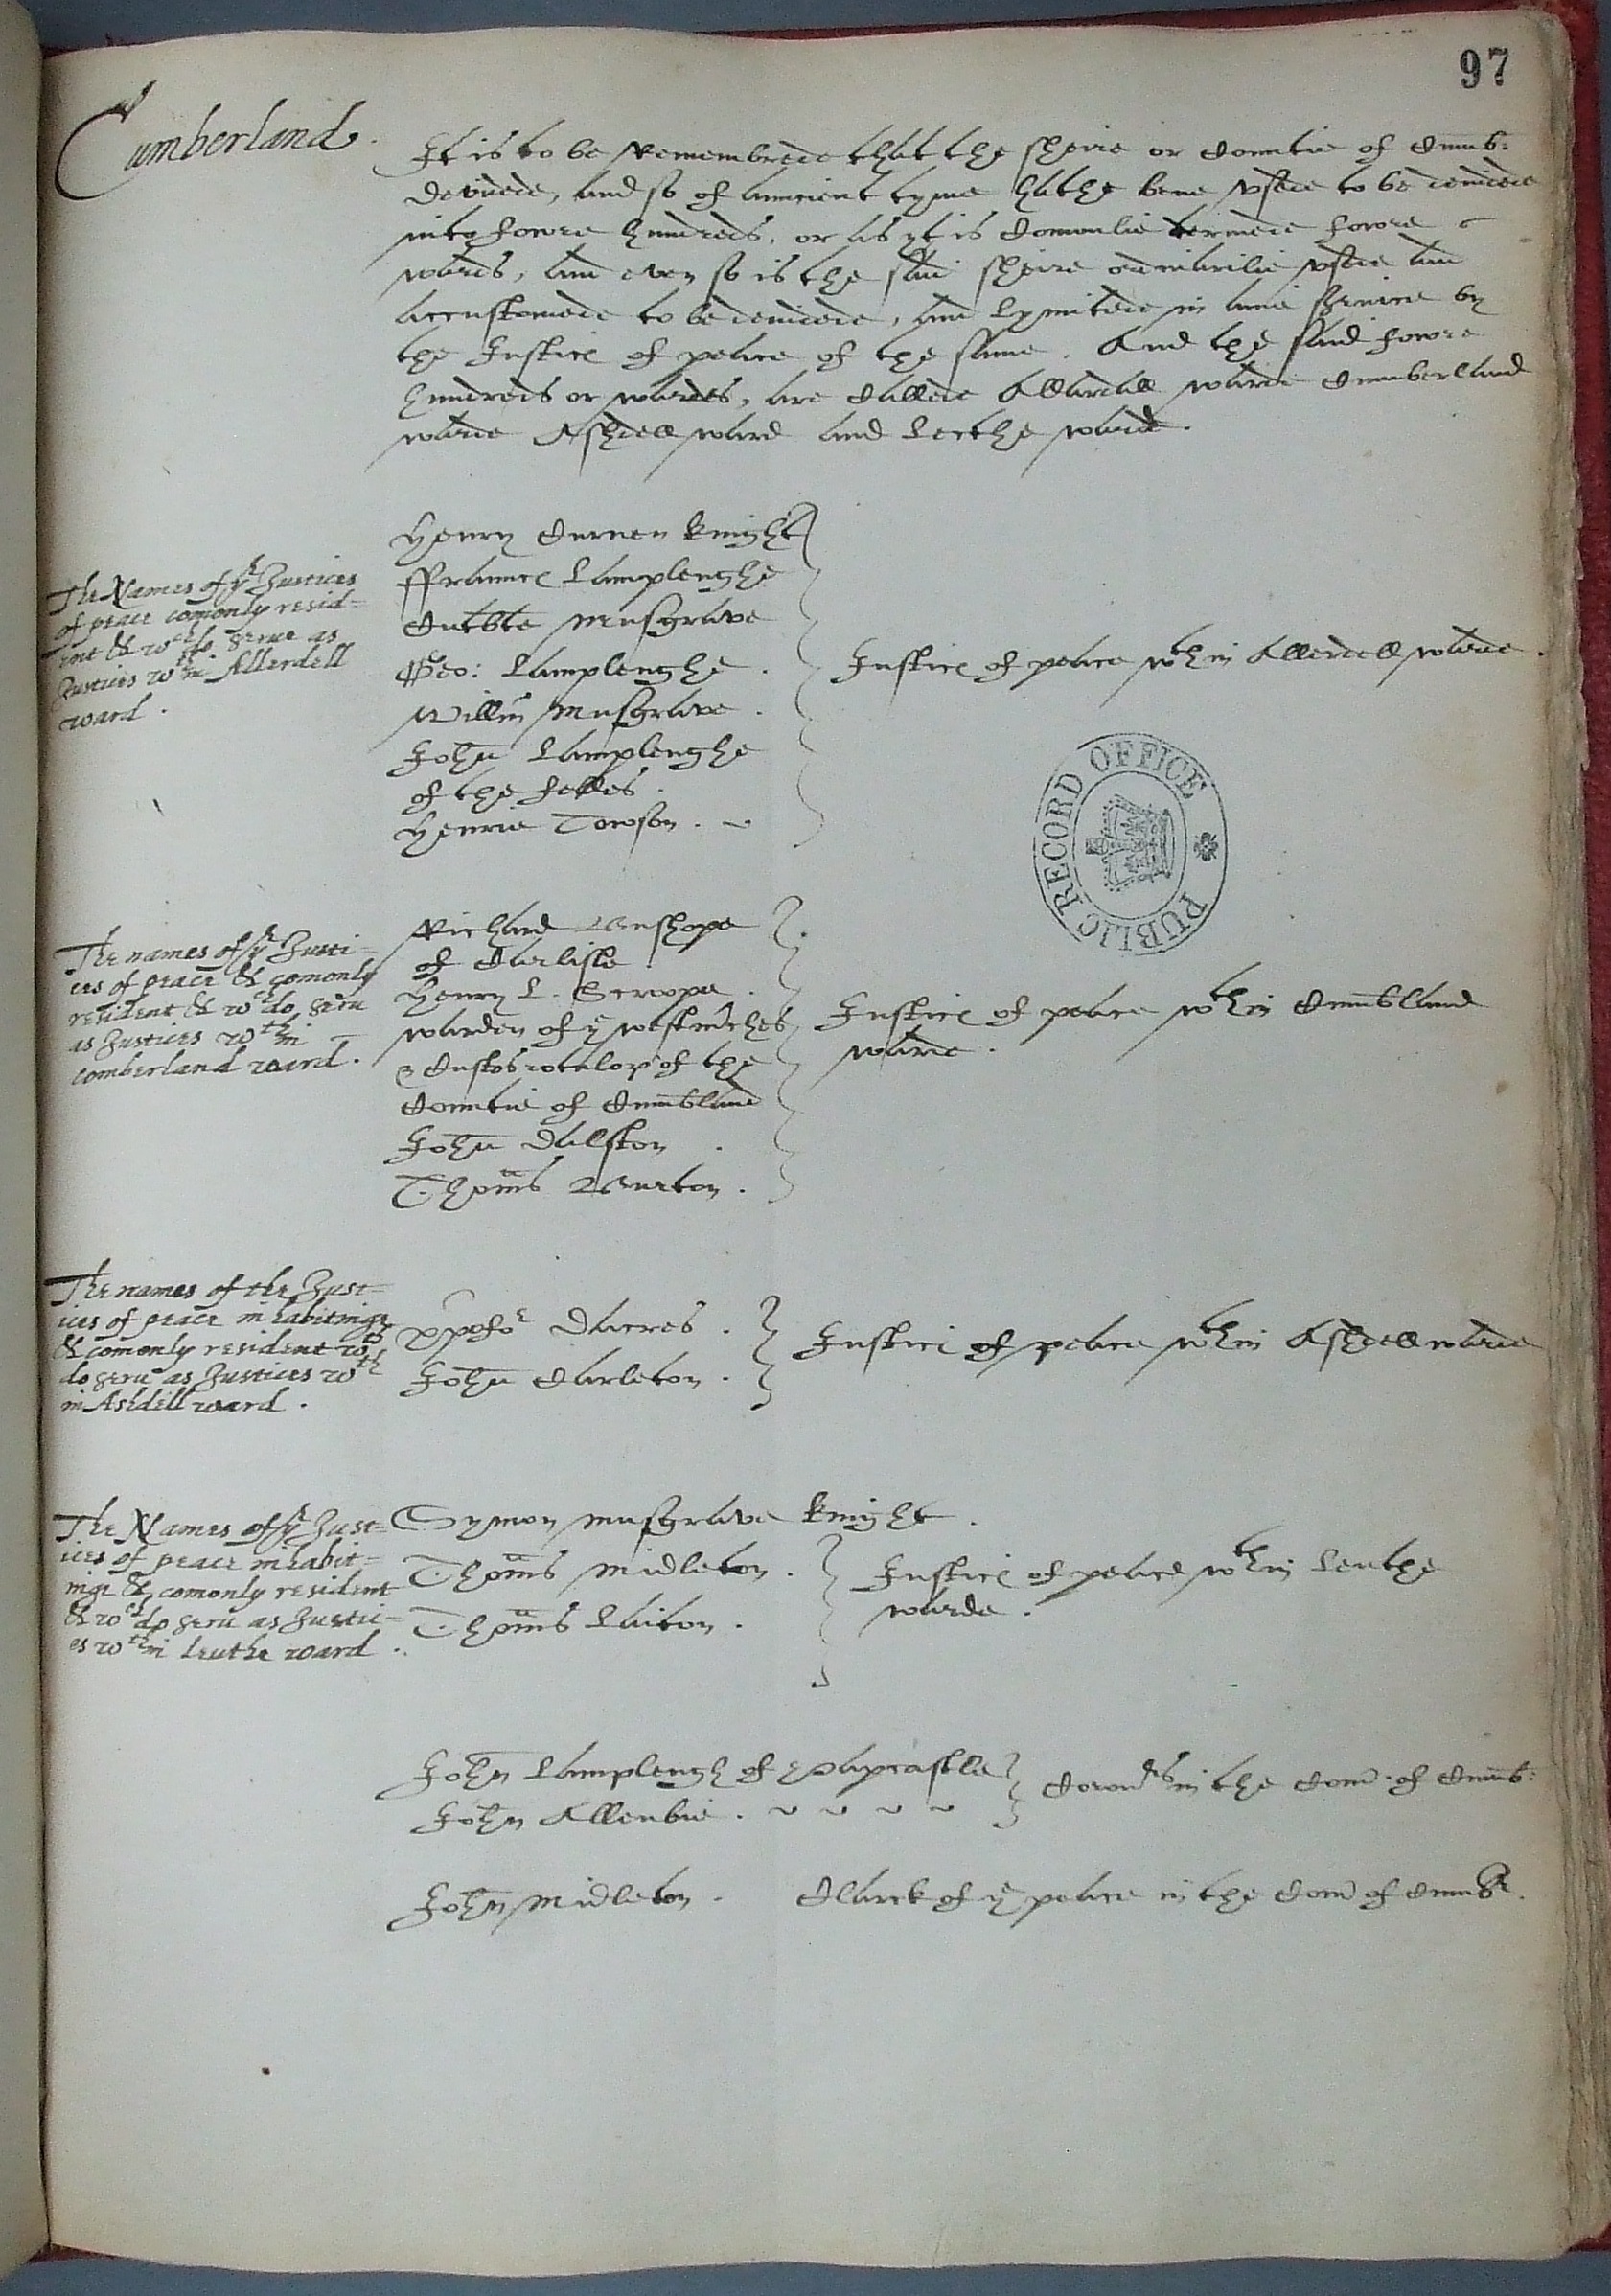 97
Cumberland.
It is to be Remembrede that the sheire or Countie of Cumb:
devidede, and so of auncient tyme hathe bene vsede to be devidede
into fowre hundreds, or as yt is Comonlie termede fowre
wards, and even so is the said sheire ordinarilie vsede and
accustomede to be devidede, and Lymitede in anie service by
the Justice of peace of the same. And the said fowre
hundreds or wardes, are Callede Allardall warde Cumberland
warde Ashdell ward and Leethe warde.
The Names of ye Justices
of peace comonly resid=
ent & wch do serue as
Justices wthin Allerdell
ward.
Henry Curwen knight
ffrancc Lamplughe
Cutbte Musgrave
Geo: Lamplughe.
Willm Musgrave.
John Lamplughe
of the felles.
Henrie Towson.
Justice of peace wthin Allerdell warde.
PUBLIC RECORD OFFICE
The names of ye Justi=
ces of peace & comonly
resident & wch do seru
as Justices wthin
comberland ward.
Richard Bushope
of Carlisle.
Henry L. Scroope.
warden of ye west mches
& Custos rotulor of the
Countie of Cumbland
John Dalston.
Thoms Burton.
Justice of peace wthin Cumbland
warde.
The names of the Just=
ices of peace inhabitinge
& comonly resident wch
do seru as Justices wth
in Ashdell ward.
Xpofor Dacres.
John Carleton.
Justice of peace wthin Ashdell warde
The Names of ye Just=
ices of peace inhabit=
inge & comonly resident
& wch do seru as Justic=
es wthin leuthe ward.
Symon Musgrave knight.
Thoms Midleton.
Thoms Laiton.
Justice of peace wthin Leuthe
warde.
John Lamplugh of Papcastle
John Allenbie.
Corondrs in the Com. of Cumb:
John Midleton. Clarck of ye peace in the Com of Cumbr.